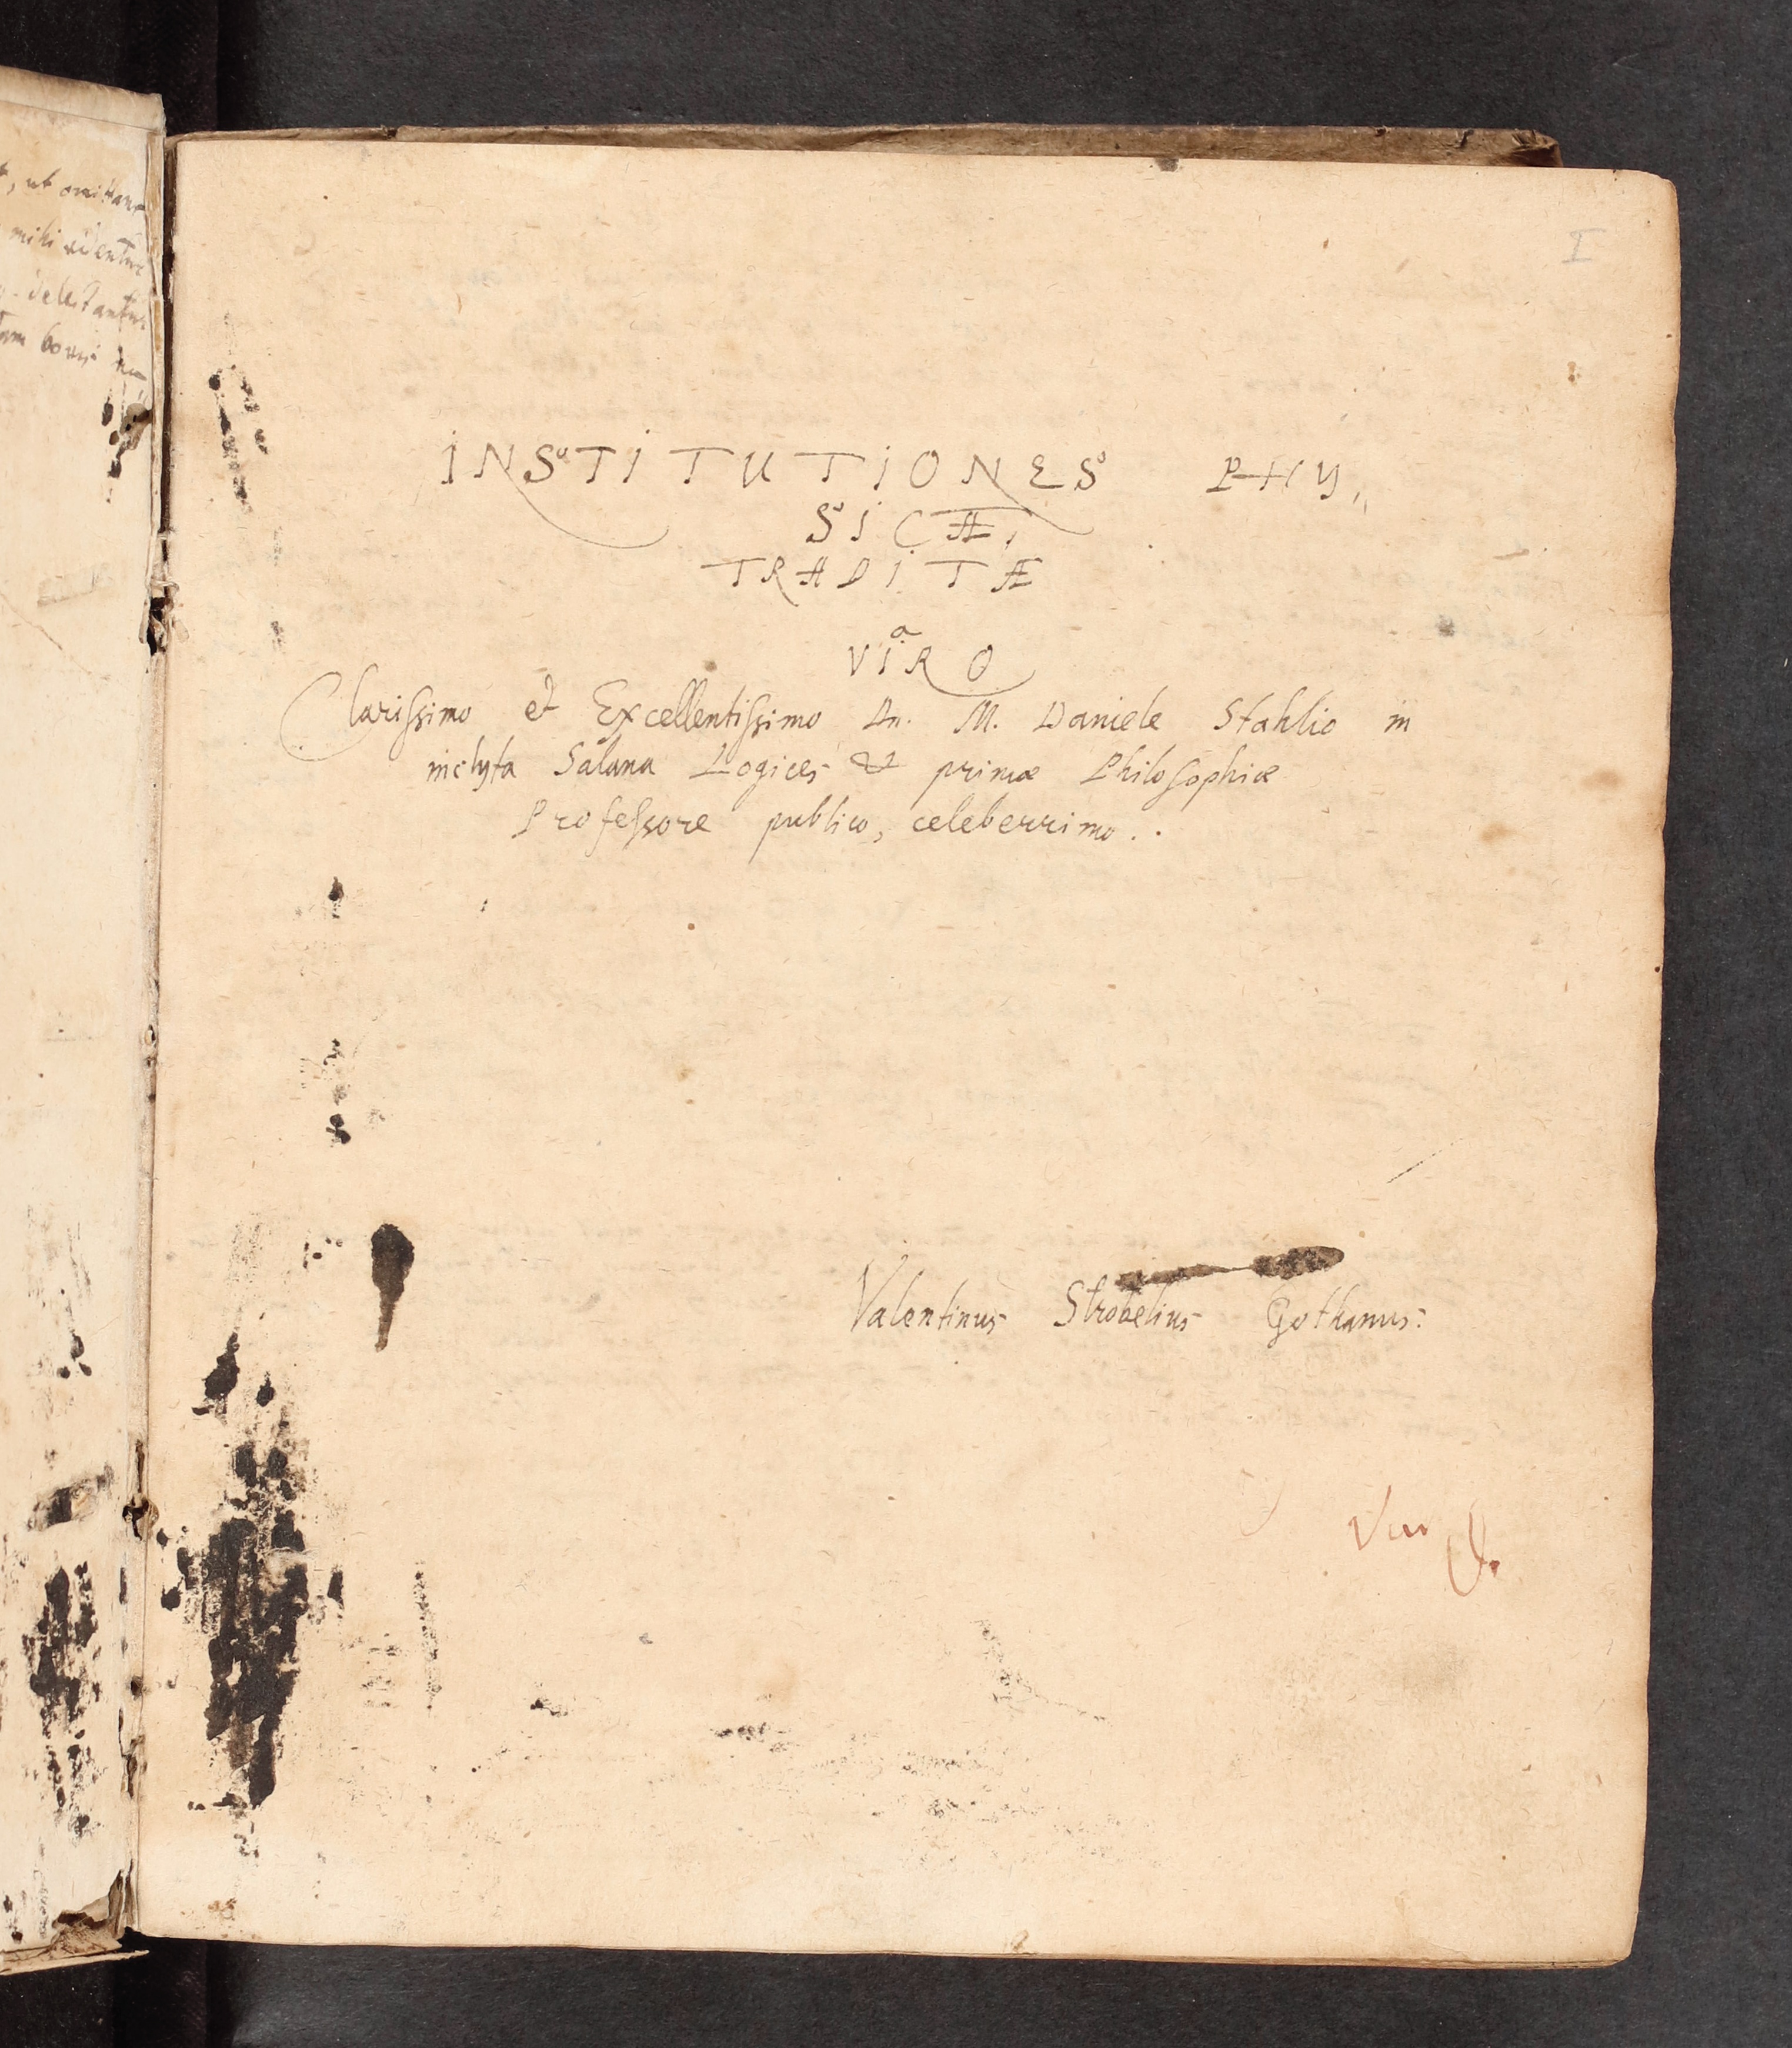 t, ut omittant
mihi videntur
delectantur
tam boni
I
INSTITUTIONES PHY„
SICÆ,
TRADITÆ
a
VIRO
Clarissimo et Excellentissimo Dn. M. Daniele Stahlio in
inclyta Salana Logices & primæ Philosophiæ
Professore publico, celeberrimo..
Valentinus Strobelius Gothanus: